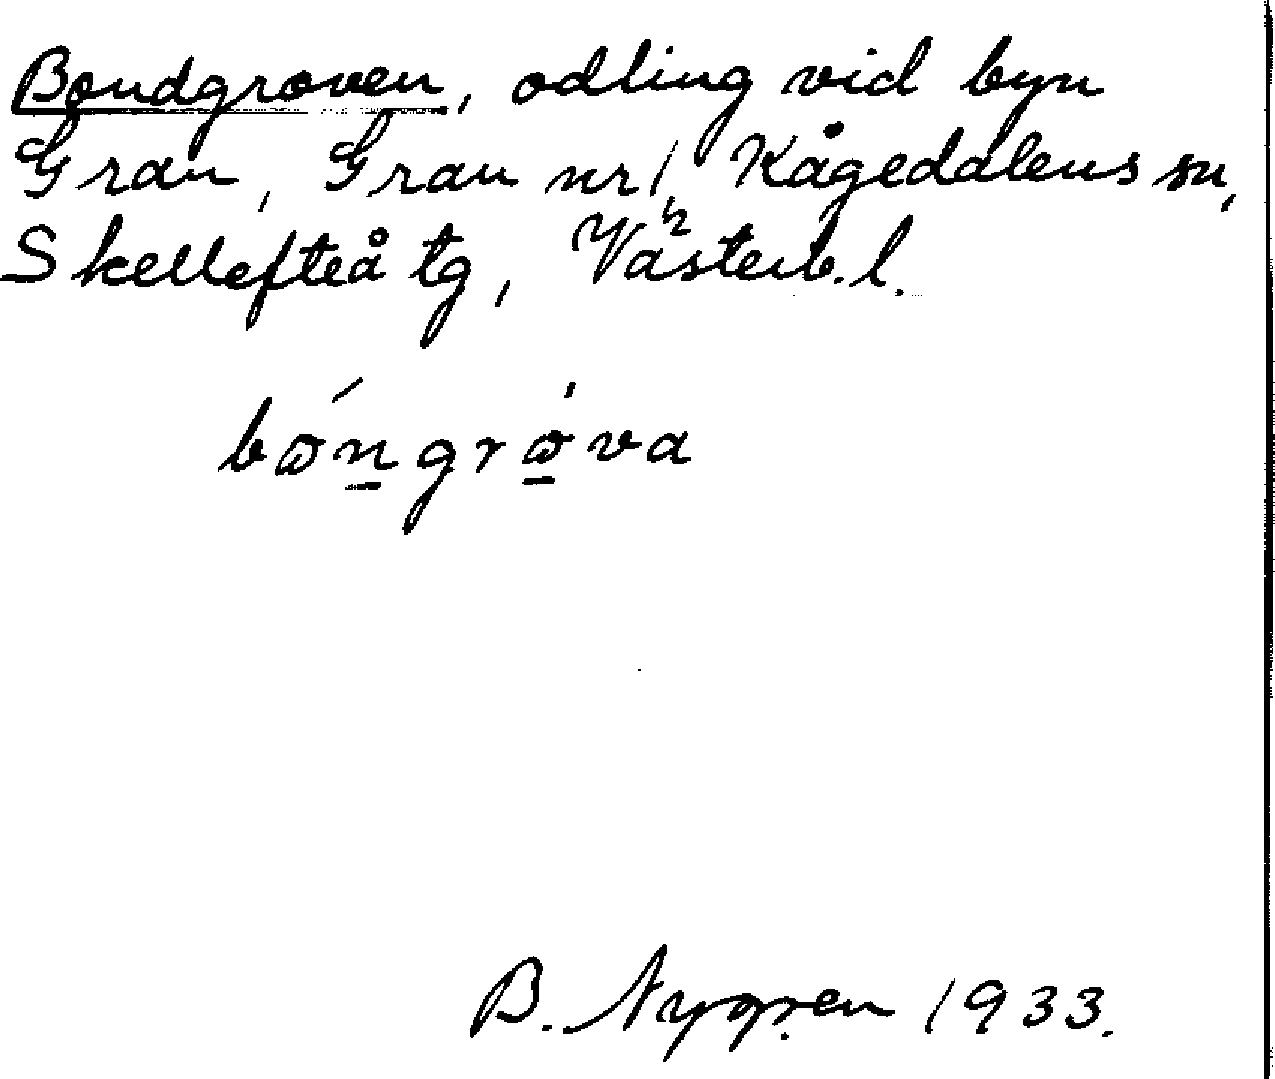 Bondgroven, odling vid byn
Gran, Gran nr 1, Kågedalens sn,
Skellefteå tg, Västerb. l.
bωńgrω̱̇va
B. Nygren 1933.